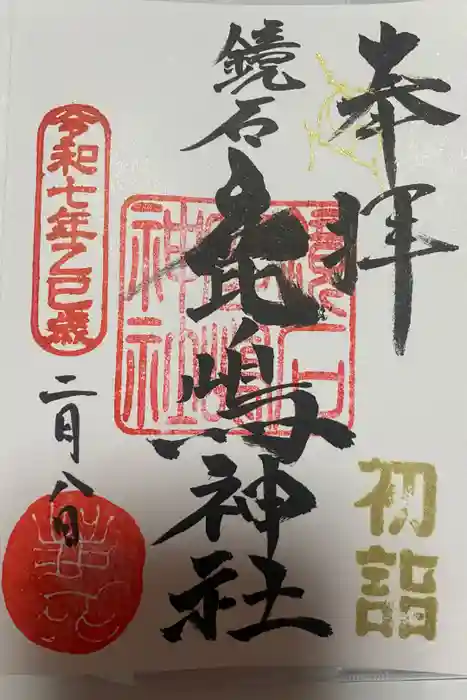 奉拝
初詣
鏡石
鹿嶋神社
令和七年乙巳歳
二月八日